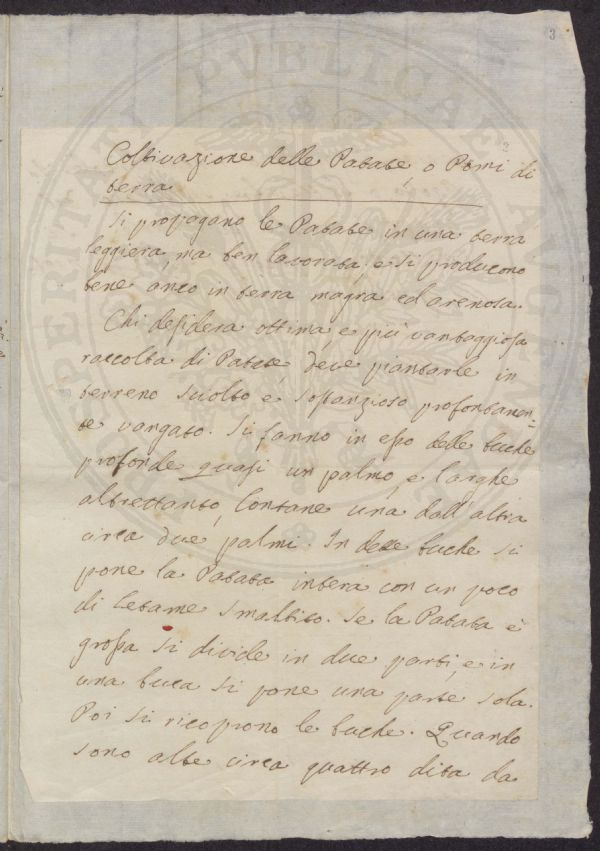 3
Coltivazione delle Patate, o Pomi di
terra
Si propagano le Patate in una terra
leggiera, ma ben lavorata; e si producono
bene anco in terra magra ed arenosa.
Chi desidera ottima, e più vantaggiosa
raccolta di Patate, deve piantarle in
terreno sciolto e sostanzioso profondamen=
te vangato. Si fanno in esso delle buche
profonde quasi un palmo, e larghe
altrettanto, lontane una dall'altra
circa due palmi. In dette buche si
pone la Patata intera con un poco
di letame smaltito. Se la Patata è
grossa si divide in due parti, e in
una buca si pone una parte sola.
Poi si ricoprono le buche. Quando
sono alte circa quattro dita da